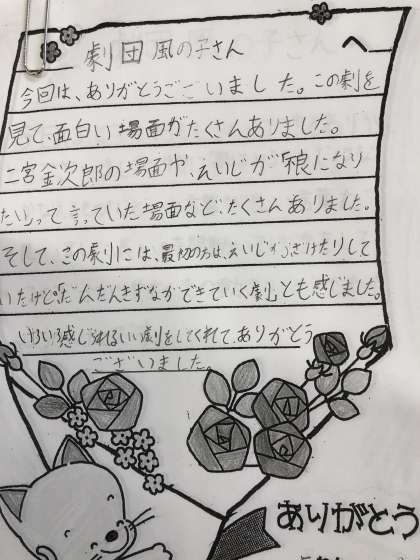 劇団 風の子さん へ
今回は、ありがとうございました。この劇を
見て、面白い場面がたくさんありました。
二宮金次郎の場面や、えいじが「狼になり
たい」って言っていた場面など、たくさんありました。
そして、この劇には、最初の方は、えいじがふざけたりして
いたけど「だんだんきずなができていく劇」とも感じました。
いろいろ感じれるいい劇をしてくれて、ありがとう
ございました。
ありがとう